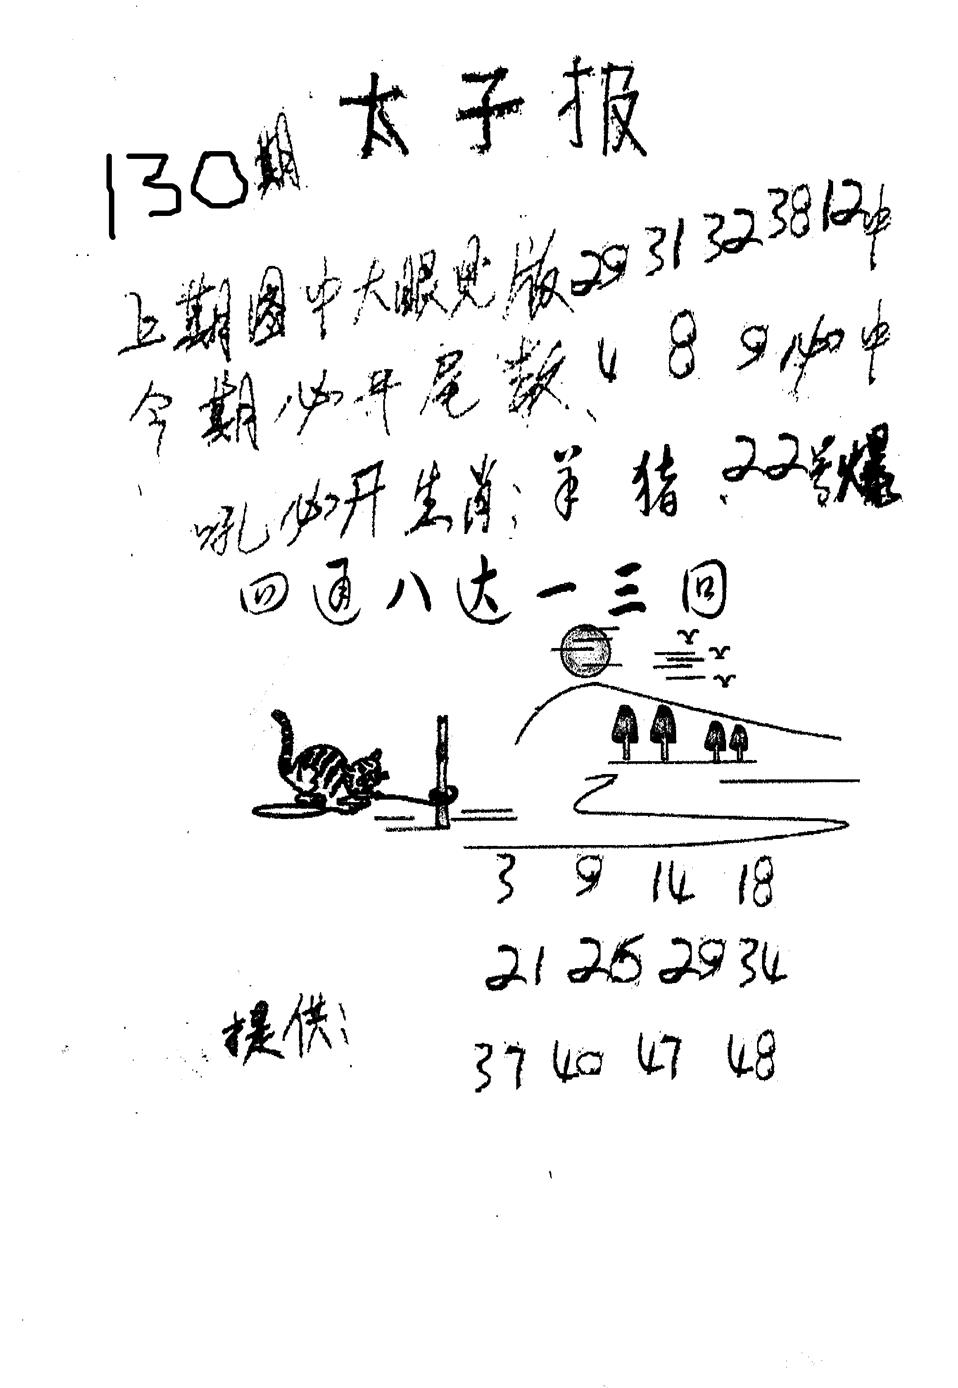 太子报
130期
上期图中大眼见版29 31 32 38 12中
今期必开尾数、4 8 9必中
吼必开生肖：羊 猪、22号爆
四通八达一三回
3 9 14 18
21 26 29 34
提供：
37 40 47 48